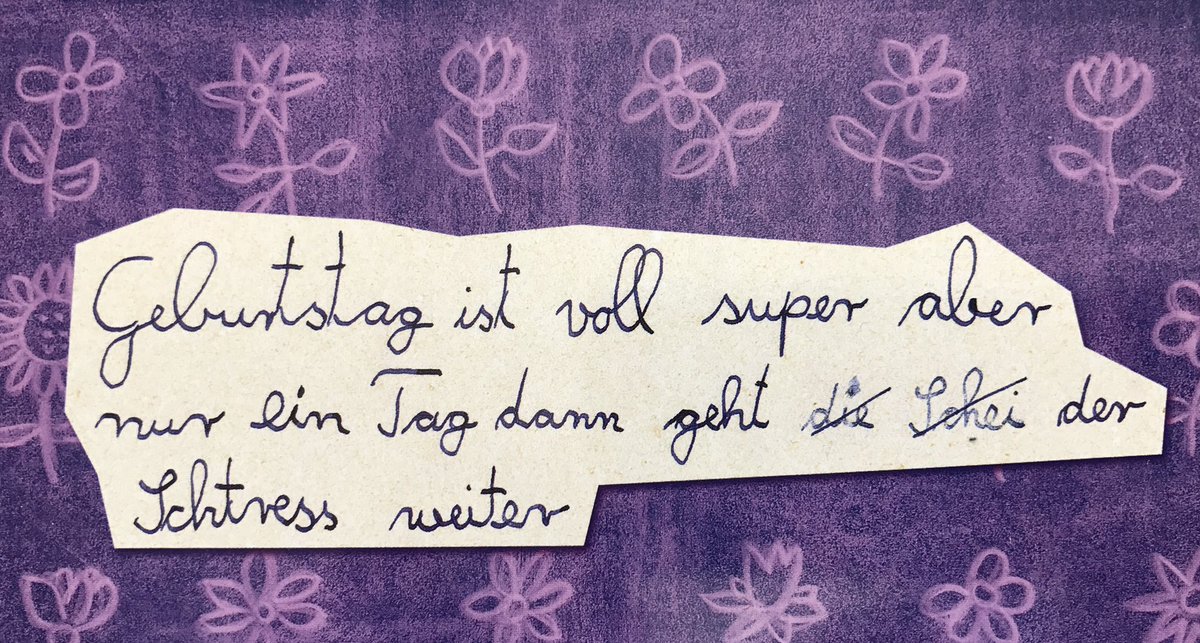 Geburtstag ist voll super aber
nur ein Tag dann geht die Schei der
Schtress weiter